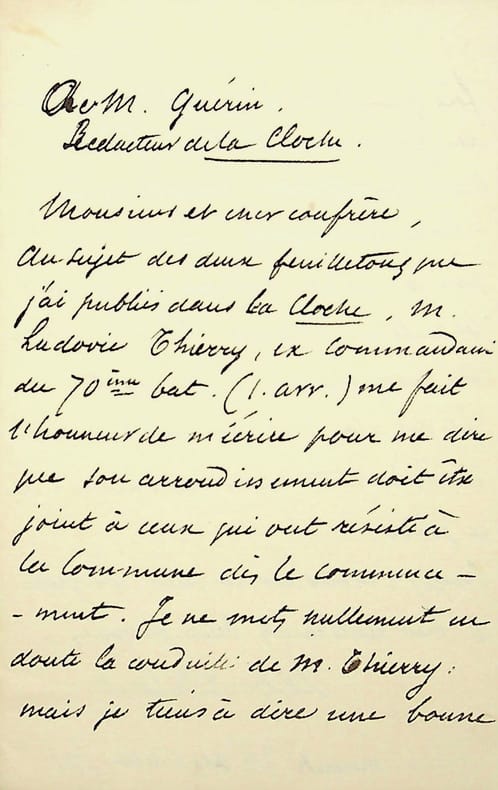 Cher M. Guérin.
Rédacteur de la Cloche.
Monsieur et cher confrère,
Au sujet des deux feuilletons que
j'ai publiés dans la Cloche, M.
Ludovic Thierry, ex commandant
du 70ème bat. (1. arr.) me fait
l'honneur de m'écrire pour me dire
que son arrondissement doit être
joint à ceux qui ont résisté à
la Commune dès le commence-
-ment. Je ne mets nullement en
doute la conduite de M. Thierry:
mais je tiens à dire une bonne